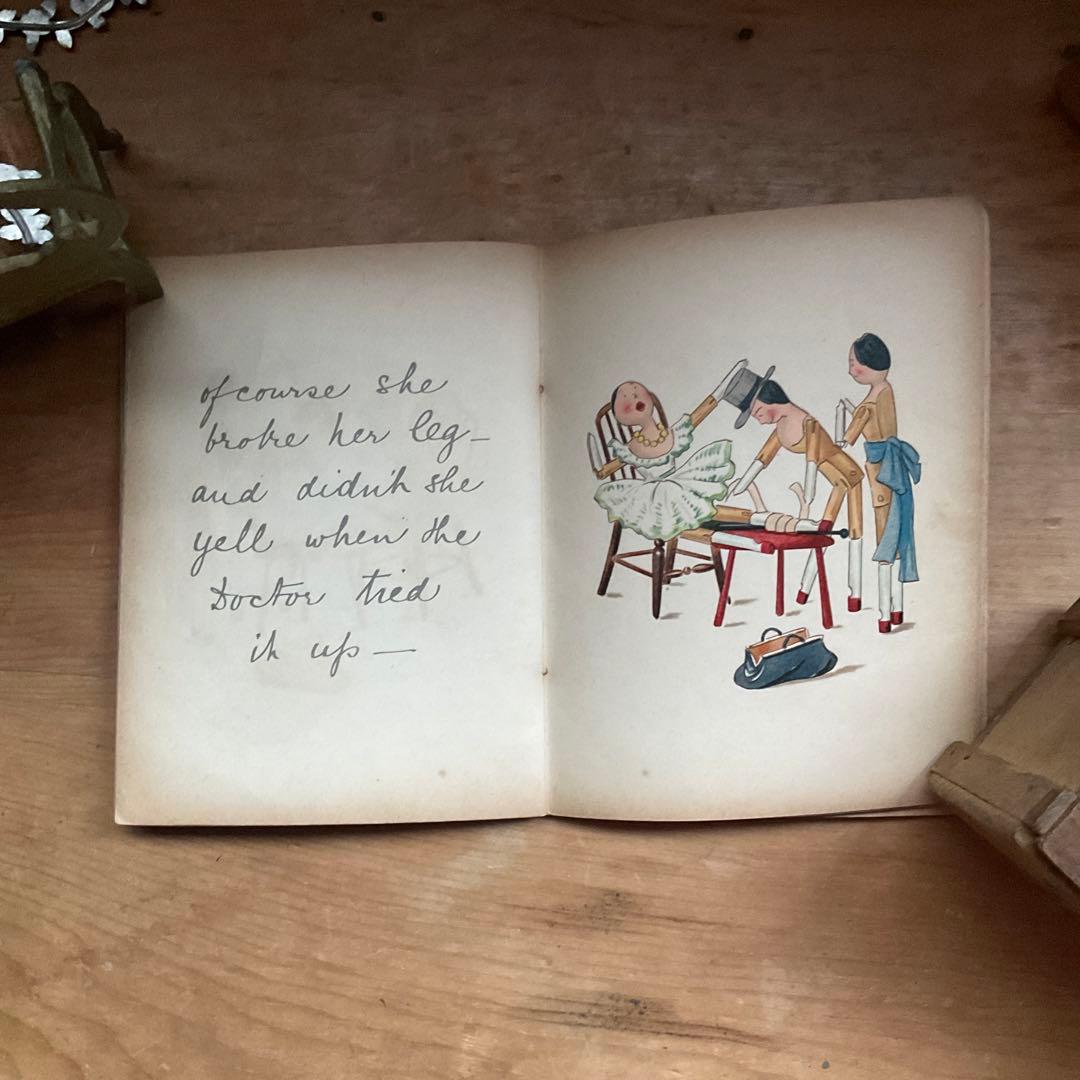 ofcourse she
broke her leg—
and didn't she
yell when the
Doctor tied
it up—